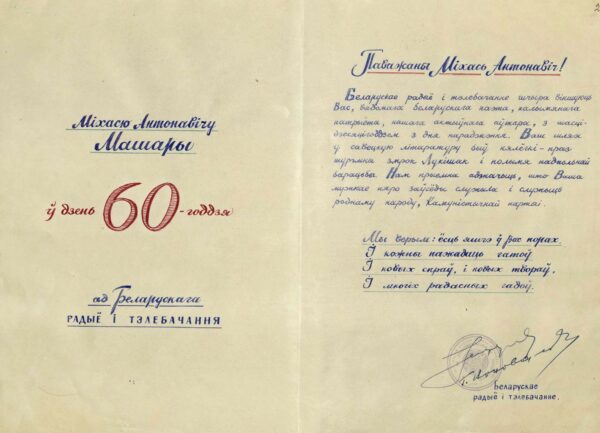 Міхасю Антонавічу
Машары
ў дзень 60-годдзя
ад Беларускага
РАДЫЁ І ТЭЛЕБАЧАННЯ
2
Паважаны Міхась Антонавіч!
Беларускае радыё і тэлебачанне шчыра віншуюць
Вас, вядомага беларускага паэта, палымянага
патрыёта, нашага актыўнага аўтара, з шасці-
дзесяцігоддзем з дня нараджэння. Ваш шлях
у савецкую літаратуру быў нялёгкі – праз
турэмны змрок Лукішак і полымя падпольнай
барацьбы. Нам прыемна адзначыць, што Ваша
мужнае пяро заўсёды служыла і служыць
роднаму народу, Камуністычнай партыі.
Мы верым: ёсць яшчэ ў вас порах
І кожны пажадаць гатоў
І новых спраў, і новых твораў,
І многіх радасных гадоў.
Беларускае
радыё і тэлебачанне.